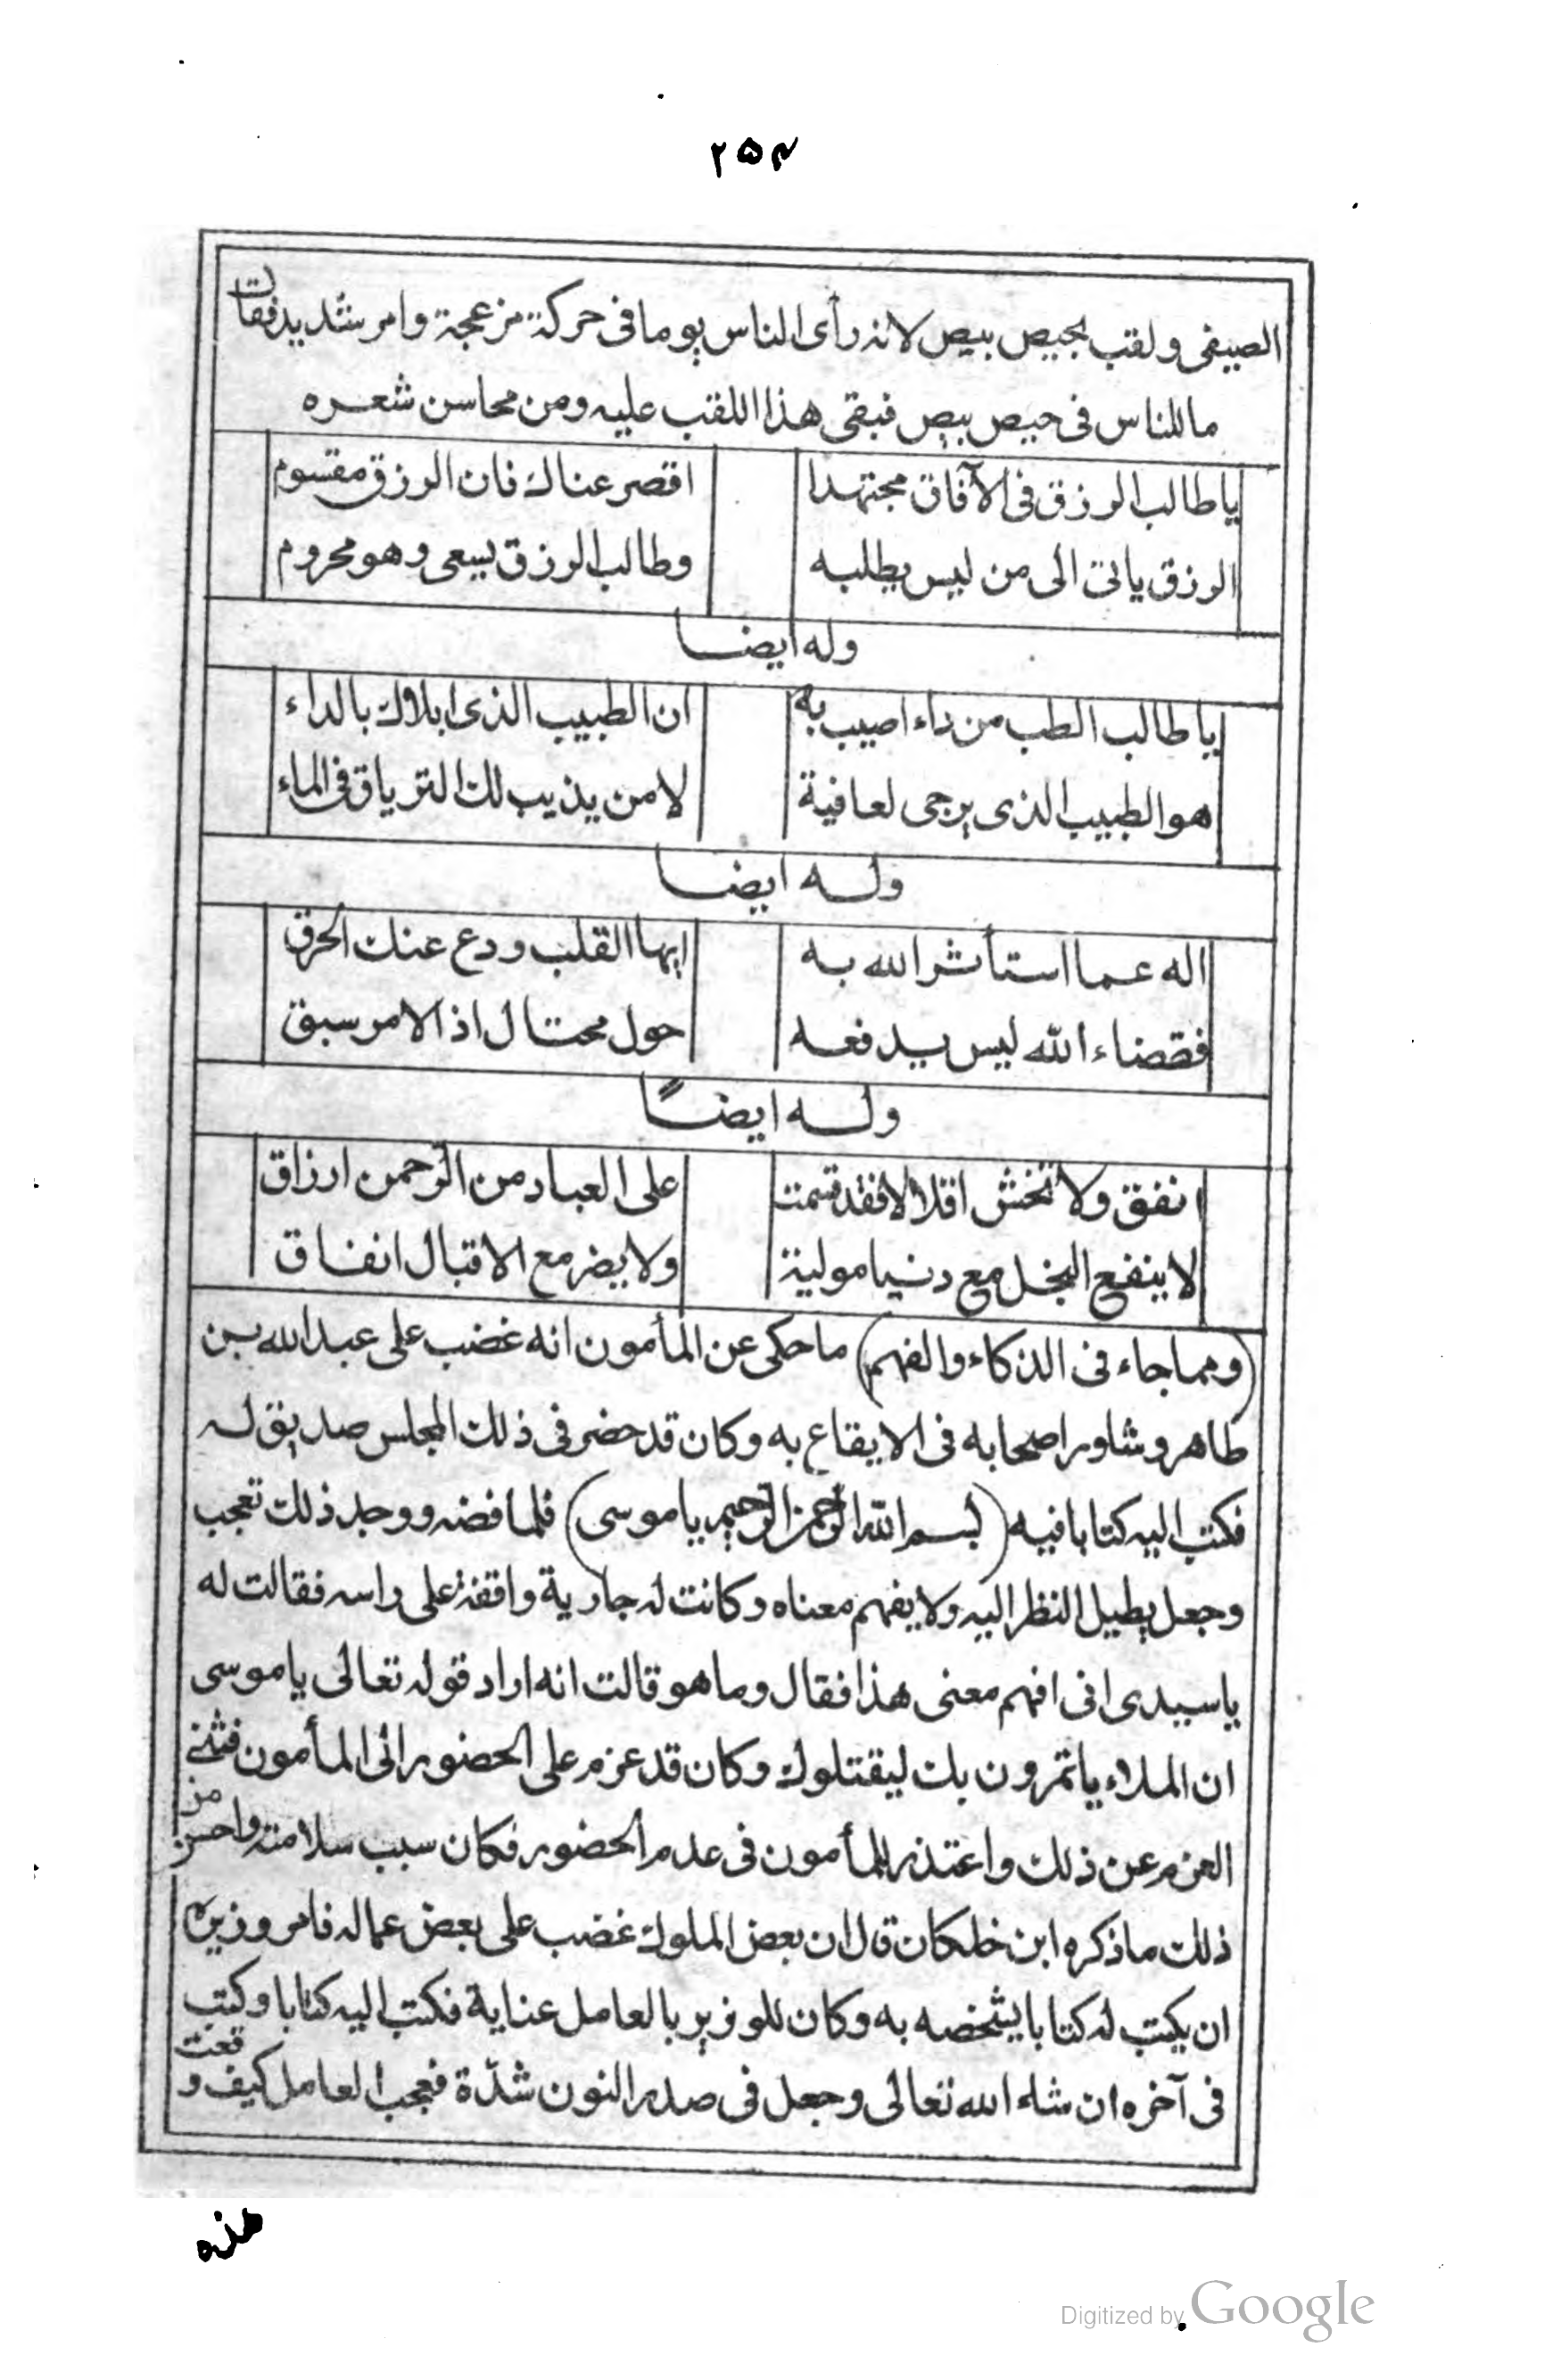 ٢٥٤
الصيفى ولقب بحيص بيص لانه رأى الناس يوما فى حركة مزعجة وامر شديد فقال
ما للناس فى حيص بيص فبقى هذا اللقب عليه ومن محاسن شعره
يا طالب الرزق فى الآفاق مجتهدا اقصر عناك فان الرزق مقسوم
الرزق ياتى الى من ليس يطلبه وطالب الرزق يسعى وهو محروم
وله ايضا
يا طالب الطب من داء اصيب به ان الطبيب الذى ابلاك بالداء
هو الطبيب الذى يرجى لعافية لا من يذيب لك الترياق فى الماء
وله ايضا
اله عما استأثر الله به ايها القلب ودع عنك الحرق
فقضاء الله ليس يدفعه حول محتال اذ الامر سبق
وله ايضاً
انفق ولا تخش اقلالا فقد قسمت على العباد من الرحمن ارزاق
لا ينفع البخل مع دنيا مولية ولا يضر مع الاقبال انفاق
(ومما جاء فى الذكاء والفهم) ما حكى عن المأمون انه غضب على عبد الله بن
طاهر وشاور اصحابه فى الايقاع به وكان قد حضر فى ذلك المجلس صديق له
فكتب اليه كتابا فيه (بسم الله الرحمن الرحيم يا موسى) فلما فضه ووجد ذلك تعجب
وجعل يطيل النظر اليه ولا يفهم معناه وكانت له جارية واقفة على راسه فقالت له
يا سيدى انى افهم معنى هذا فقال وما هو قالت انه اراد قوله تعالى يا موسى
ان الملاء ياتمرون بك ليقتلوك وكان قد عزم على الحضور الى المأمون فثنى
العزم عن ذلك واعتذر للمأمون فى عدم الحضور فكان سبب سلامته واحسن من
ذلك ما ذكره ابن خلكان قال ان بعض الملوك غضب على بعض عماله فامر وزيره
ان يكتب له كتابا يشخصه به وكان للوزير بالعامل عناية فكتب اليه كتابا وكتب
فى آخره ان شاء الله تعالى وجعل فى صدر النون شدّة فعجب العامل كيف وقعت
هذه
Digitized by Google